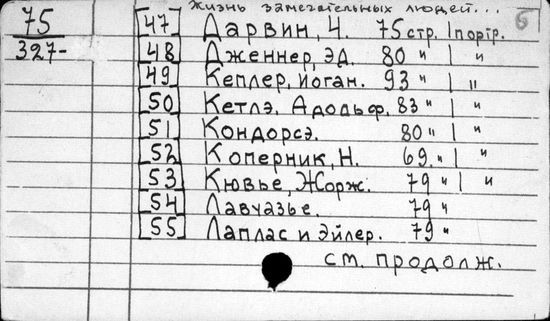 Жизнь замечательных людей... 6
75 [47] Дарвин, Ч. 75 стр. | портр.
327- [48] Дженнер, Эд. 80 " | "
[49] Кеплер, Иоган. 93 " | "
[50] Кетлэ, Адольф. 83 " | "
[51] Кондорсэ. 80 " | "
[52] Коперник, Н. 69. " | "
[53] Кювье, Жорж. 79 " | "
[54] Лавуазье. 79 "
[55] Лаплас и Эйлер. 79 "
см. продолж.